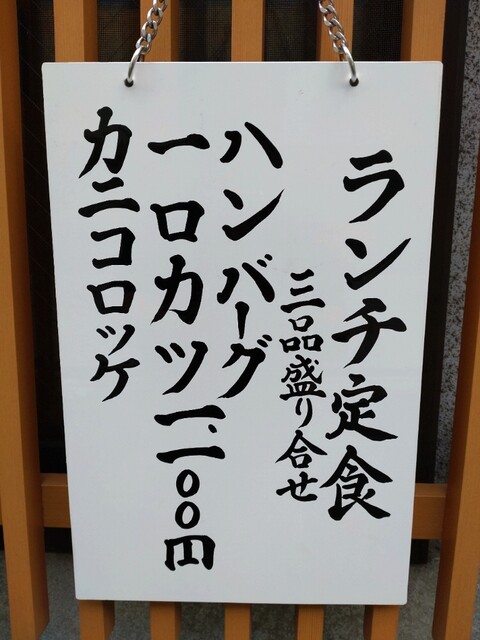 ランチ定食
三品盛り合せ
ハンバーグ
一口カツ一、一〇〇円
カニコロッケ